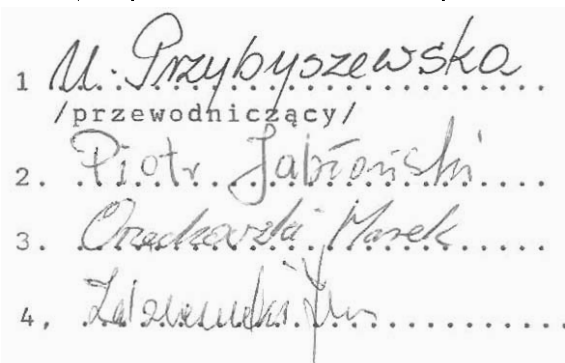 1 U. Przybyszewska
/przewodniczący/
2. Piotr Jabłoński
3. Orzechowski Marek
4.